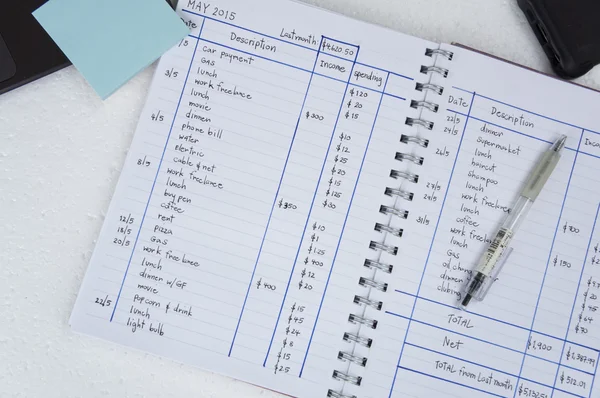 MAY 2015
Last month: $4620.50
Date Description Income Spending
/5 car payment $120
Gas $20
lunch $15
3/5 work freelance $300
lunch $10
movie $12
dinner $25
4/5 phone bill $20
water $15
electric $125
cable & net $30
8/5 work freelance $350
lunch $10
buy pen $1
coffee $1.25
rent $400
12/5 pizza $12
18/5 Gas $20
20/5 work freelance $400
lunch $15
dinner w/GF $45
movie $24
popcorn & drink $8
22/5 lunch $15
light bulb $25
Date Description Inco
22/5 dinner
24/5 supermarket
lunch
26/5 haircut
shampoo
lunch
27/5 work freelance $700
29/5 lunch
coffee
31/5 work freelanc $150
lunch
Gas
oil chang $20
dinner $45
clothing $64
$70
TOTAL $1,900 $1,387.99
Net $512.01
TOTAL from Last month $5132.51